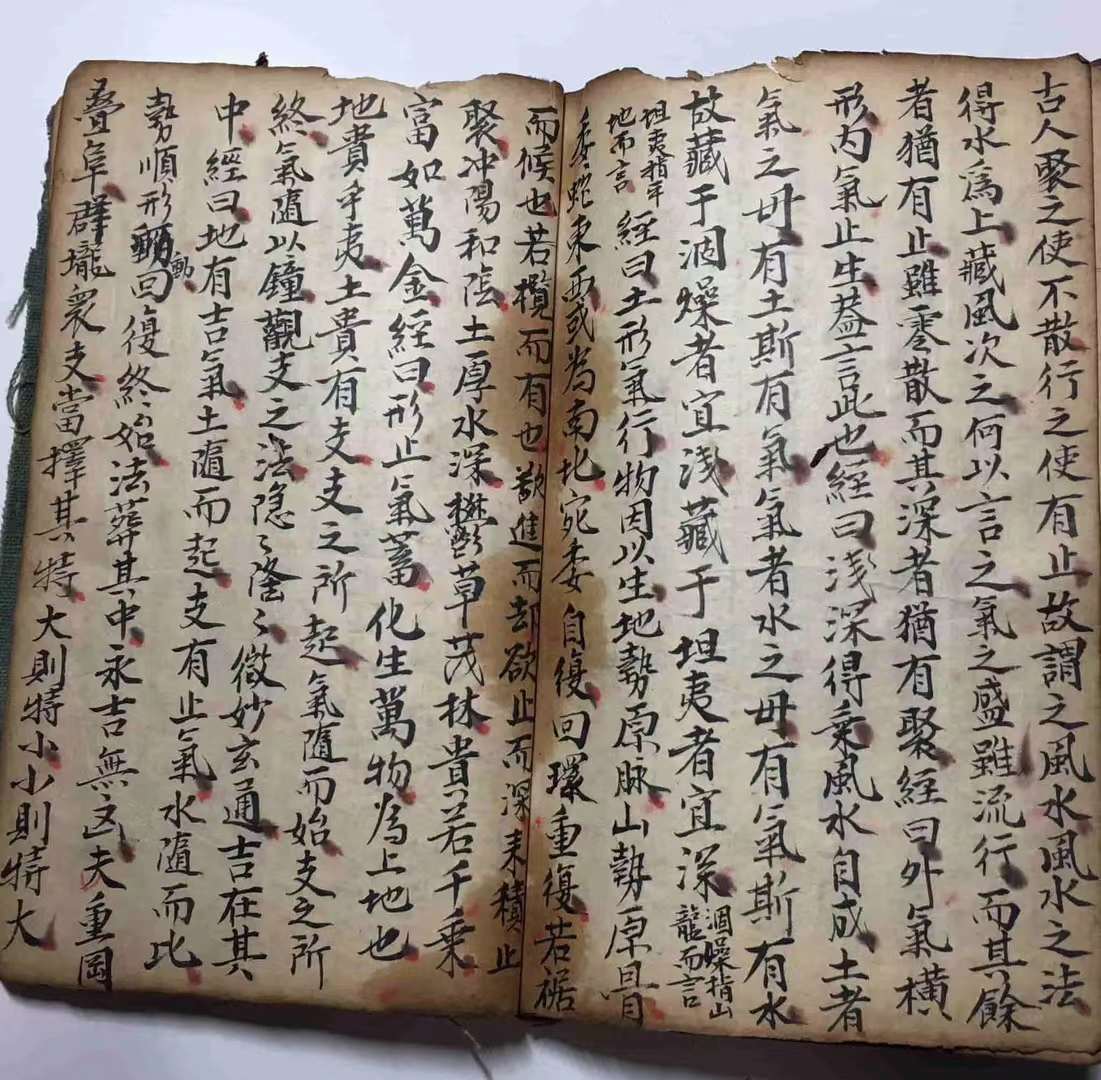 古人聚之使不散行之使有止故謂之風水風水之法
得水為上藏風次之何以言之氣之盛雖流行而其餘
者猶有止雖零散而其深者猶有聚經曰外氣橫
形內氣止生蓋言此也經曰淺深得乘風水自成土者
氣之毋有土斯有氣氣者水之毋有氣斯有水
故藏于涸燥者宜淺藏于坦夷者宜深涸燥指山龍而言
坦夷指平地而言經曰土形氣行物因以生地勢原脉山勢原骨
委蛇東西或為南北宛委自復回環重復若裾
而候也若攬而有也欲進而却欲止而深来積止
聚冲陽和陰土厚水深欝草茂林貴若千乘
富如萬金經曰形止氣蓄化生萬物為上地也
地貴乎夷土貴有支支之所起氣隨而始支之所
終氣隨以鐘觀支之法隱々隆々微妙玄通吉在其
中經曰地有吉氣土隨而起支有止氣水隨而比
勢順形動回復終始法葬其中永吉無凶夫重岡
疊阜群壠衆支當擇其特大則特小小則特大